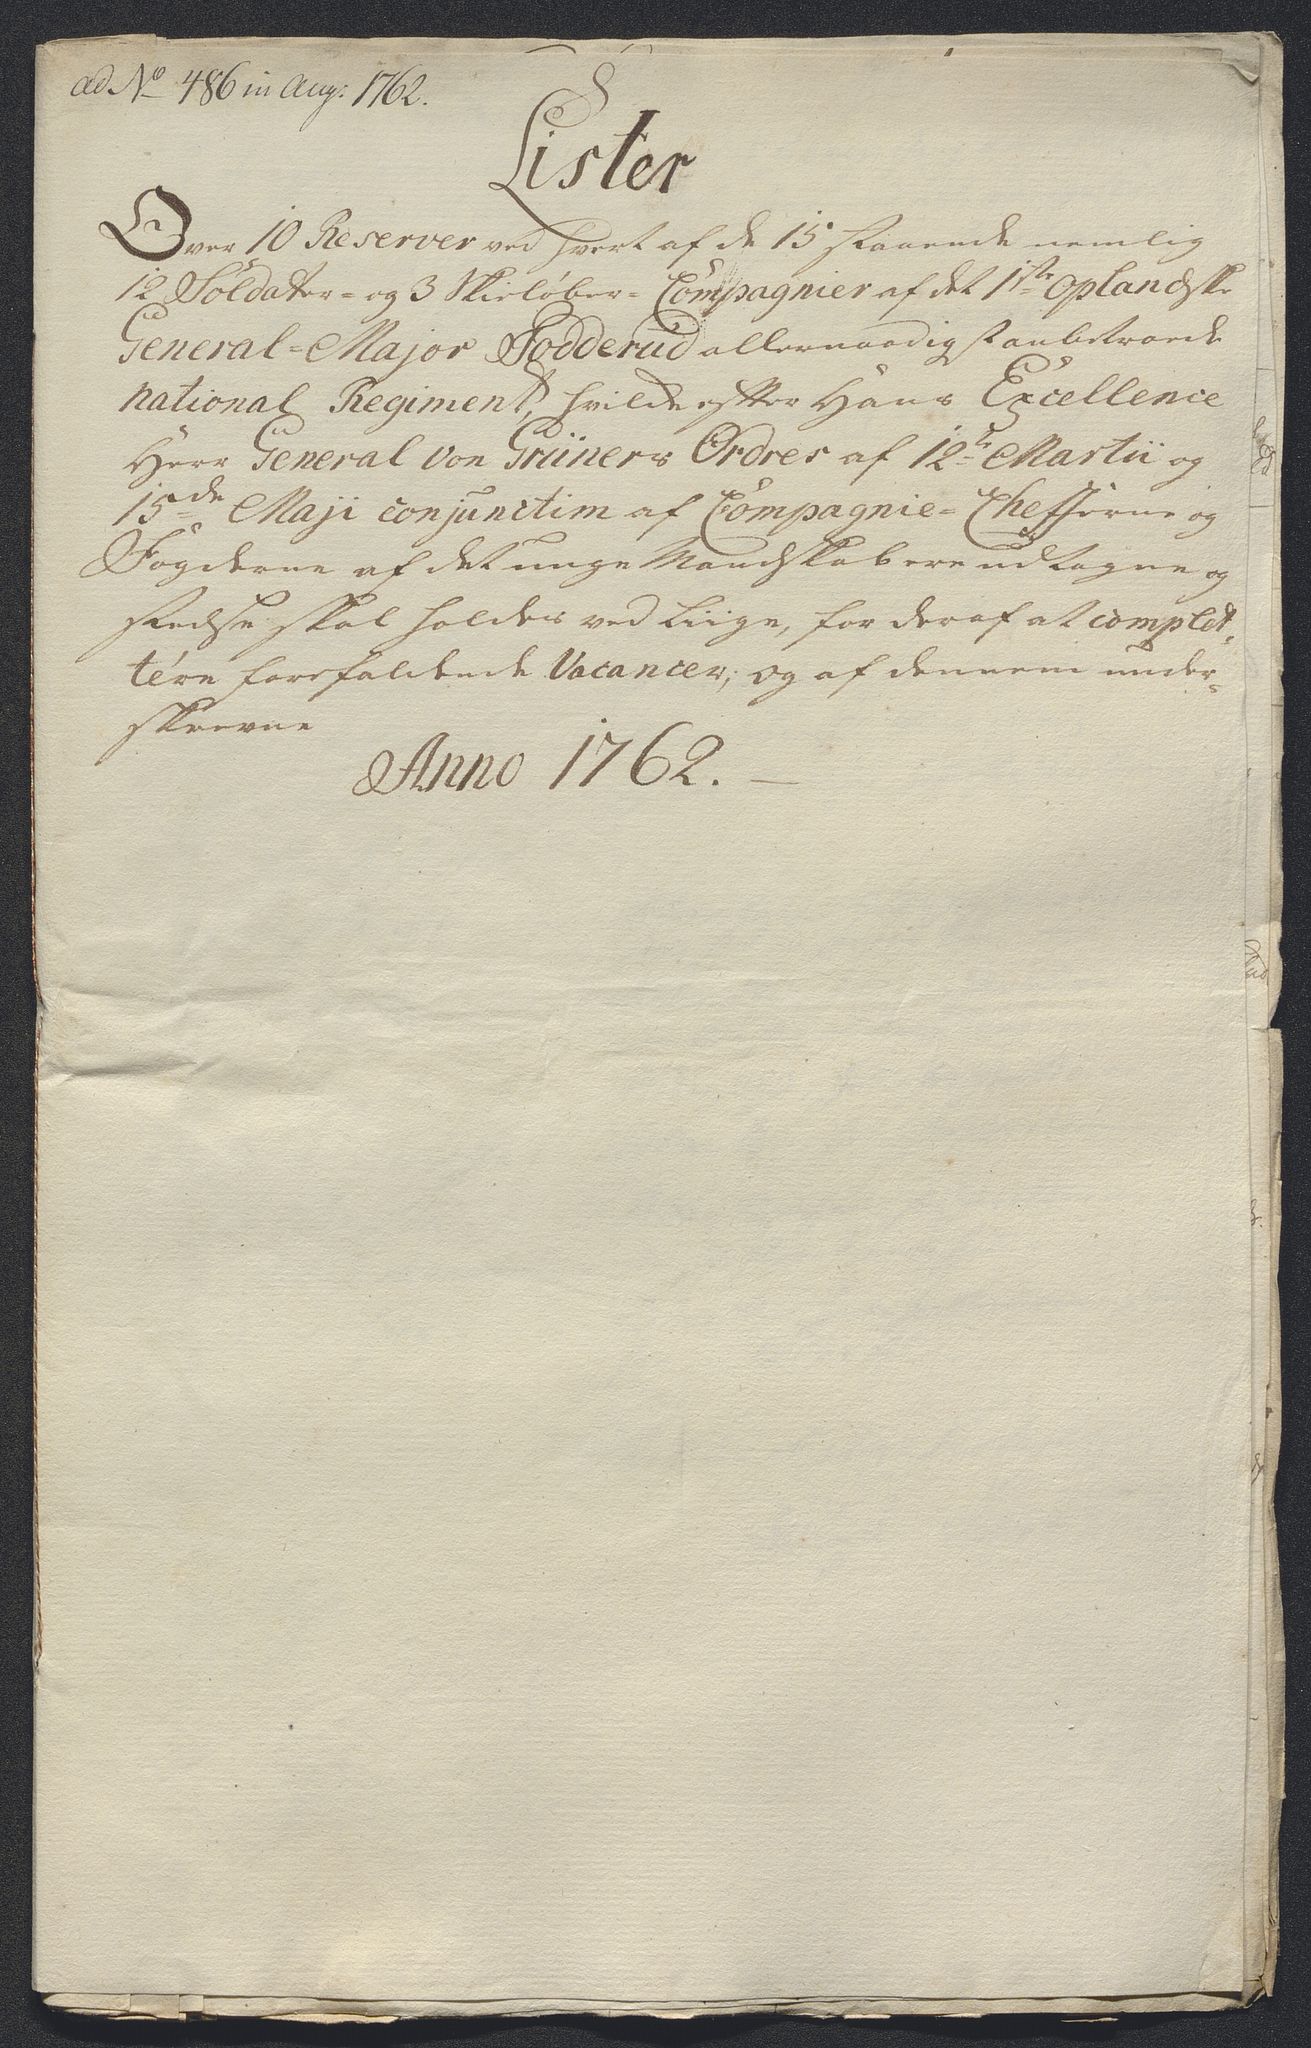 ad No 486 in Aug: 1762.
Lister
Over 10 Reserver ved hvert af de 15 staaende nemlig
12 Soldater- og 3 Skieløber- Compagnier af det 1ste Oplandske
General-Major Fodderud allernaadigst anbetroede
national Regiment, hvilcke efter Hans Excellence
Herr General von Grüners Ordres af 12te Martii og
15de Maji conjunctim af Compagnie-Chefferne og
Fogderne af det unge Mandskab ere udtagne og
stedse skal holdes ved Liige, for deraf at complet-
tére forefaldende Vacancer, og af dennem under-
skrevne
Anno 1762.